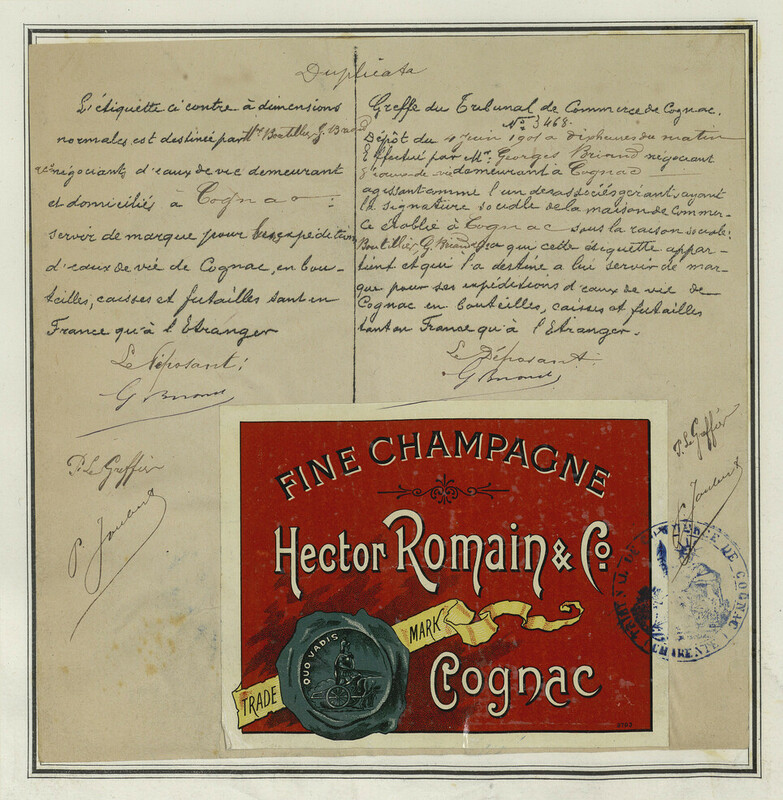 Duplicata
L'étiquette ci contre à dimensions
normales est destinée par Mrs Boutillier G. Briand
négociants d'eaux de vie demeurant
et domiciliés à Cognac
servir de marque pour expéditions
d'eaux de vie de Cognac, en bou-
teilles, caisses et futailles tant en
France qu'à l'Etranger
Le Déposant:
G Briand
P. Le Greffier
Greffe du Tribunal de Commerce de Cognac.
No 3468.
Dépôt du 4 Juin 1901 à dix heures du matin
Effectué par Mr. Georges Briand négociant
d'eaux de vie demeurant à Cognac
agissant comme l'un des associés gérants, ayant
la signature sociale de la maison de commer-
ce établie à Cognac sous la raison sociale:
Boutillier, G. Briand & Co à qui cette étiquette appar-
tient et qui l'a destiné a lui servir de mar-
que pour ses expéditions d'eaux de vie de
Cognac en bouteilles, caisses et futailles
tant en France qu'à l'Etranger.
Le Déposant:
G Briand
P. Le Greffier
FINE CHAMPAGNE
Hector Romain & Co
TRADE MARK
QUO VADIS
Cognac
TRIB. DE COMMERCE DE COGNAC
(CHARENTE)